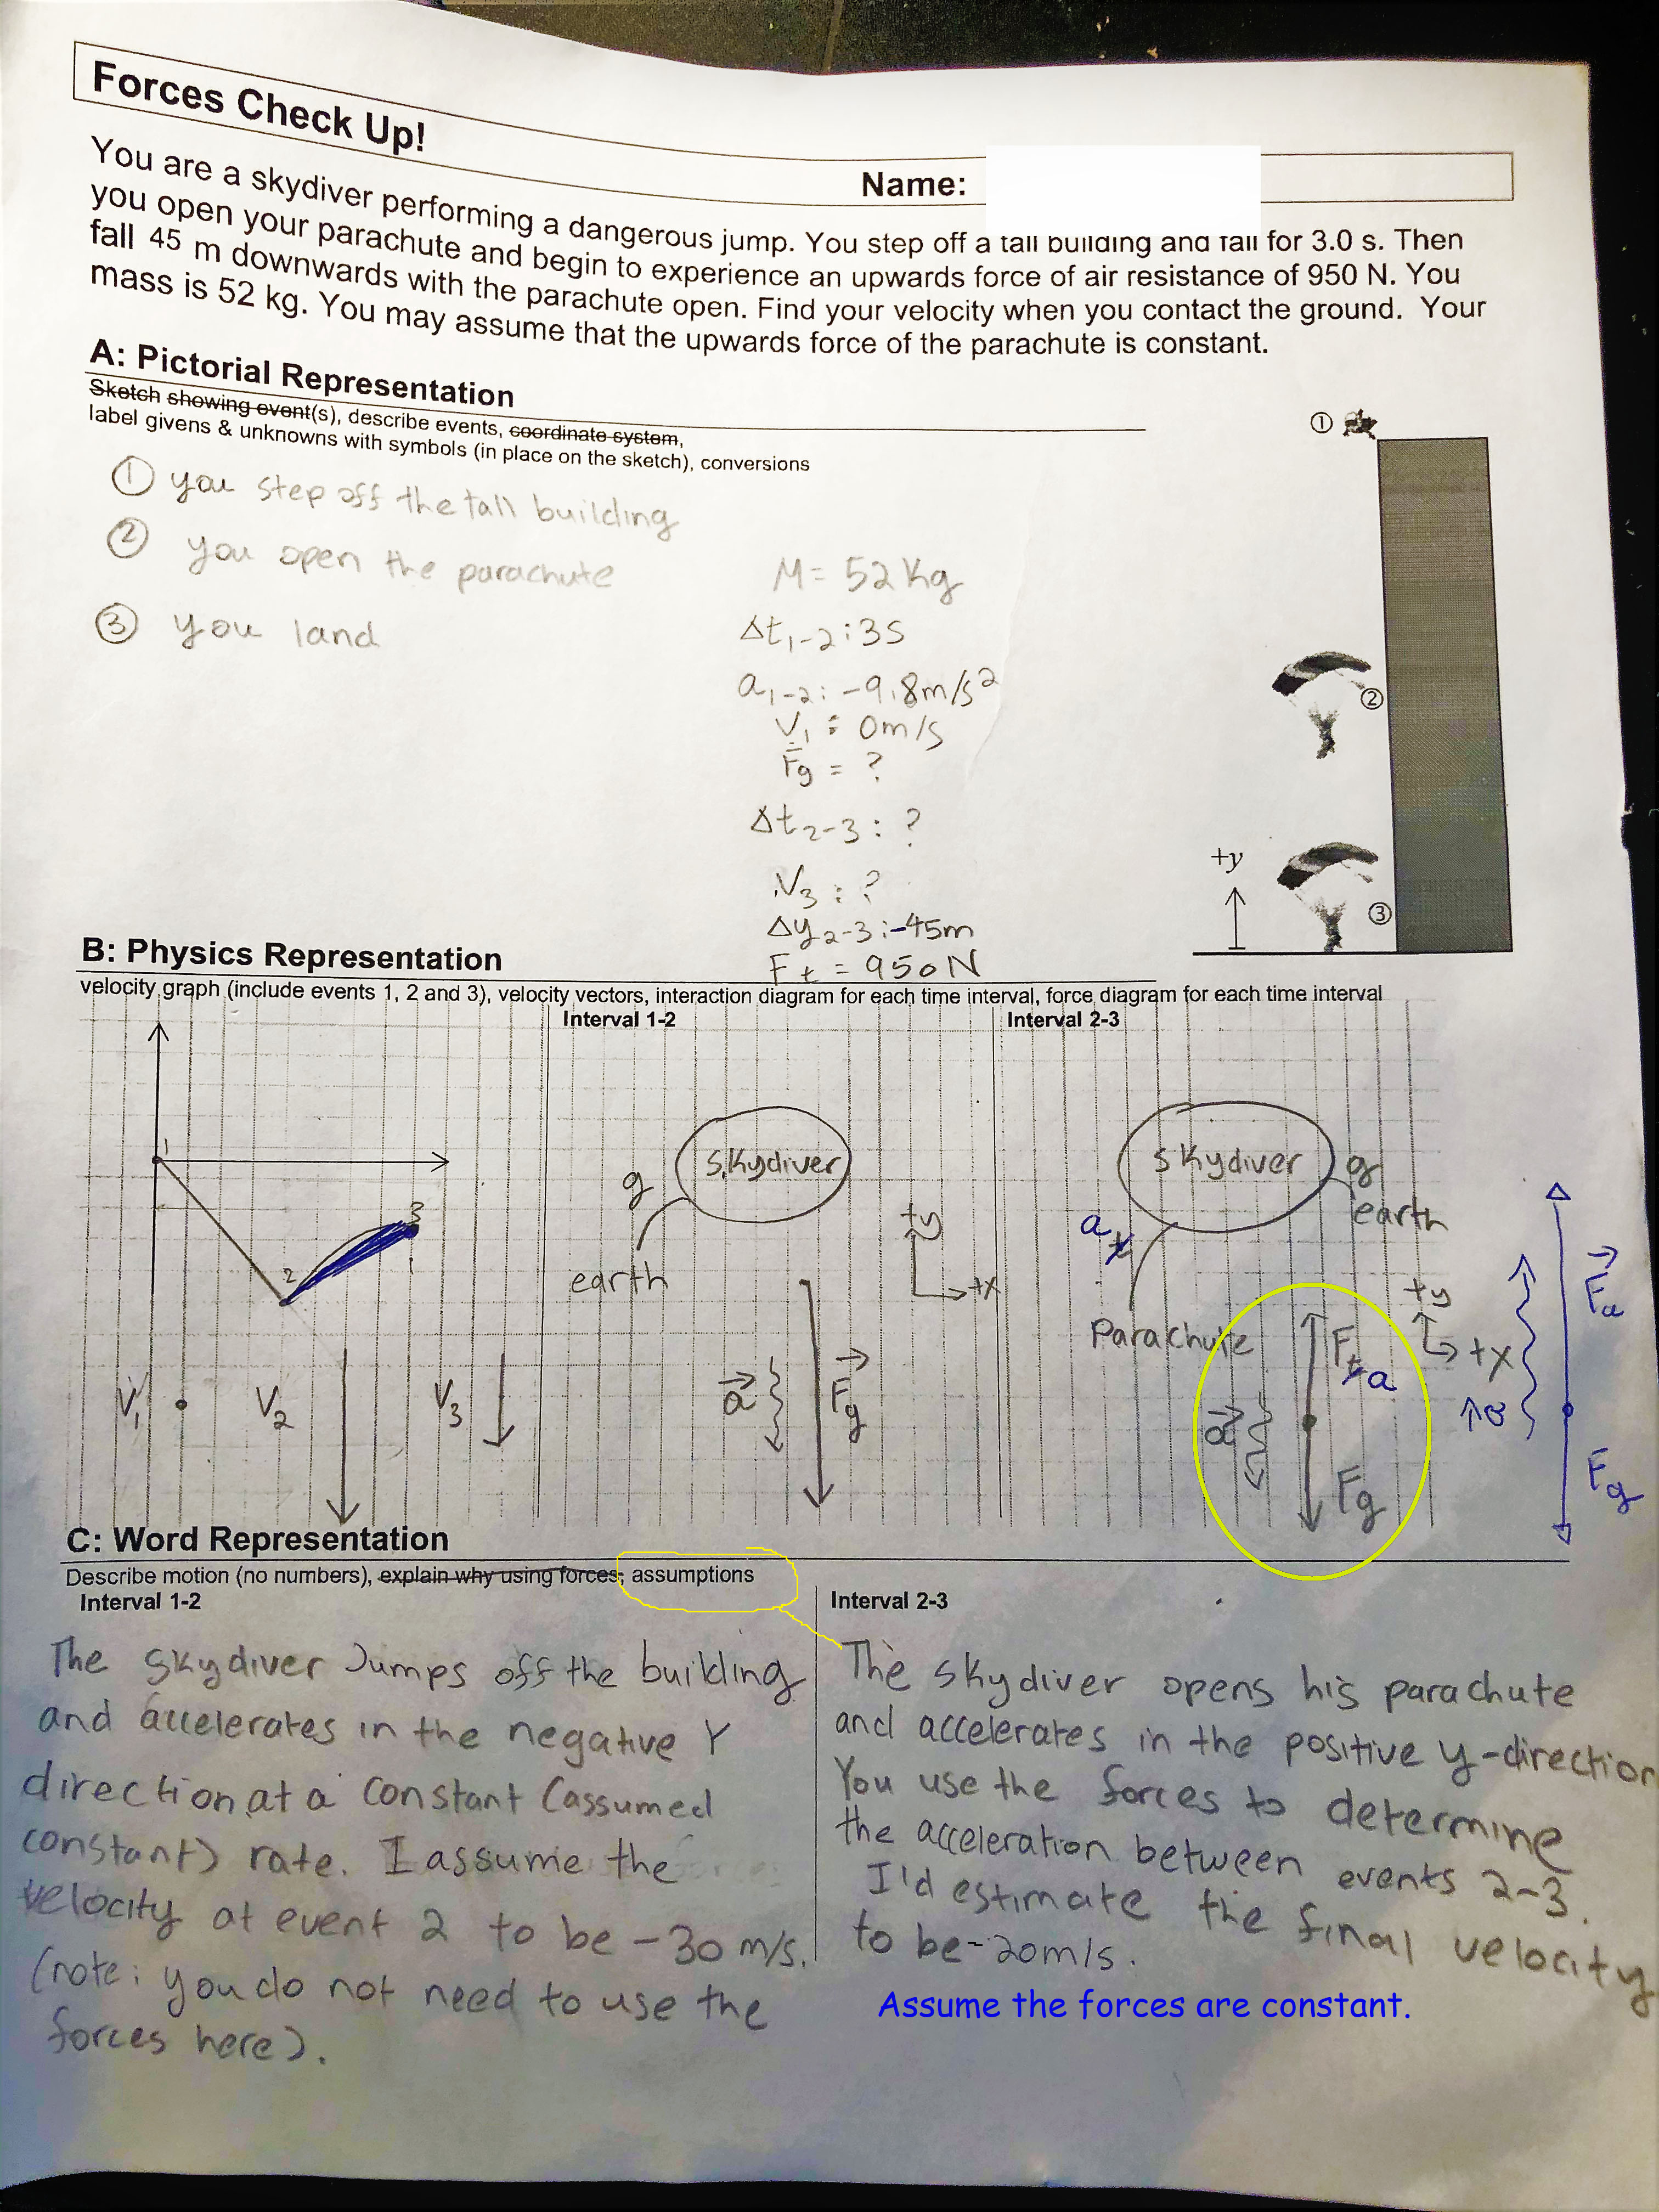 Forces Check Up!
Name:
You are a skydiver performing a dangerous jump. You step off a tall building and fall for 3.0 s. Then
you open your parachute and begin to experience an upwards force of air resistance of 950 N. You
fall 45 m downwards with the parachute open. Find your velocity when you contact the ground. Your
mass is 52 kg. You may assume that the upwards force of the parachute is constant.
A: Pictorial Representation
Sketch showing event(s), describe events, coordinate system,
label givens & unknowns with symbols (in place on the sketch), conversions
① you step off the tall building
② you open the parachute
③ you land
M= 52 Kg
Δt₁₋₂: 3s
a₁₋₂: -9.8m/s²
V₁ : 0m/s
Fg = ?
Δt₂₋₃ : ?
V₃ : ?
Δy₂₋₃ : -45m
Ft = 950N
①
②
+y
③
B: Physics Representation
velocity graph (include events 1, 2 and 3), velocity vectors, interaction diagram for each time interval, force diagram for each time interval
Interval 1-2
Interval 2-3
1
2
3
V₁
V₂
V₃
skydiver
g
earth
+y
+x
a
Fg
skydiver
g
earth
a
Parachute
+y
+x
a
Ft a
Fg
Fa
Fg
C: Word Representation
Describe motion (no numbers), explain why using forces, assumptions
Interval 1-2
The skydiver Jumps off the building
and accelerates in the negative Y
direction at a constant (assumed
constant) rate. I assume the
velocity at event 2 to be -30 m/s.
(note: you do not need to use the
forces here).
Interval 2-3
The skydiver opens his parachute
and accelerates in the positive y-direction
You use the forces to determine
the acceleration between events 2-3.
I'd estimate the final velocity
to be -20m/s.
Assume the forces are constant.